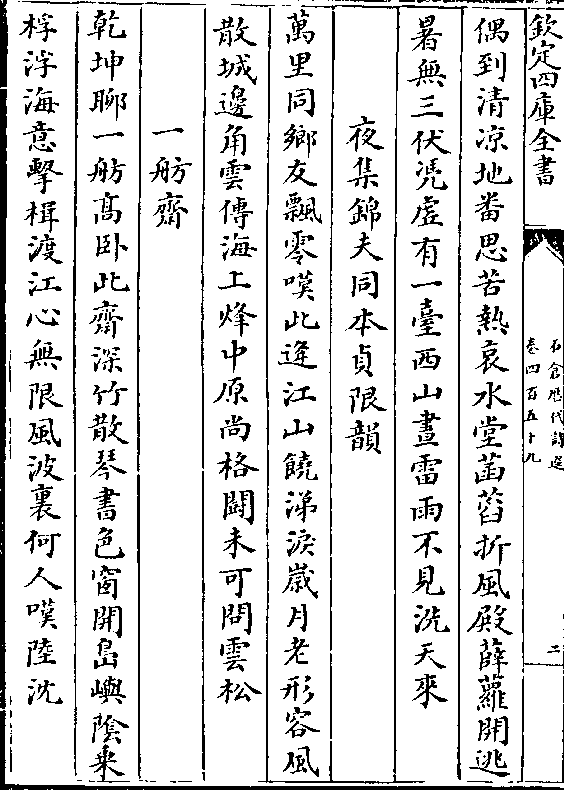 欽定四庫全書
石倉歷代詩選
卷四百五十九
二
偶到清凉地番思苦熱哀水堂菡萏折風殿薜蘿開逃
暑無三伏凭虛有一臺西山晝雷雨不見洗天來
夜集錦夫同本貞限韻
萬里同鄉友飄零嘆此逢江山饒涕淚歲月老形容風
散城邊角雲傳海上烽中原尚格鬪未可問雲松
一舫齋
乾坤聊一舫髙卧此齋深竹散琴書色窗開島嶼陰乗
桴浮海意擊楫渡江心無限風波裏何人嘆陸沈